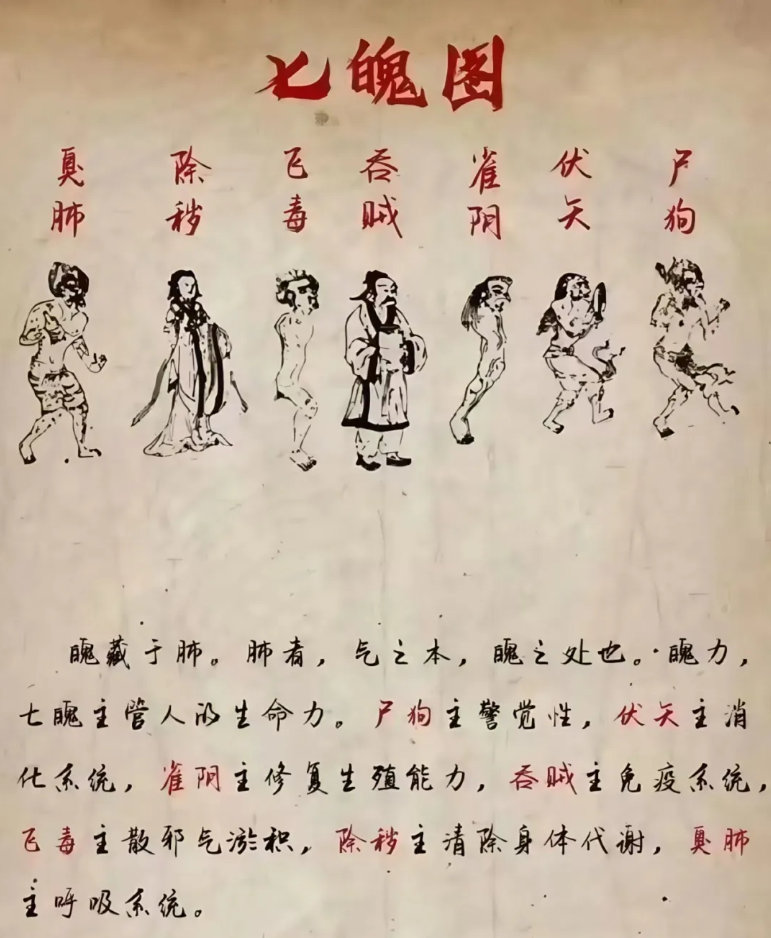 七魄图
臭肺 除秽 飞毒 吞贼 雀阴 伏矢 尸狗
魄藏于肺。肺者，气之本，魄之处也。魄力，
七魄主管人的生命力。尸狗主警觉性，伏矢主消
化系统，雀阴主修复生殖能力，吞贼主免疫系统，
飞毒主散邪气淤积，除秽主清除身体代谢，臭肺
主呼吸系统。